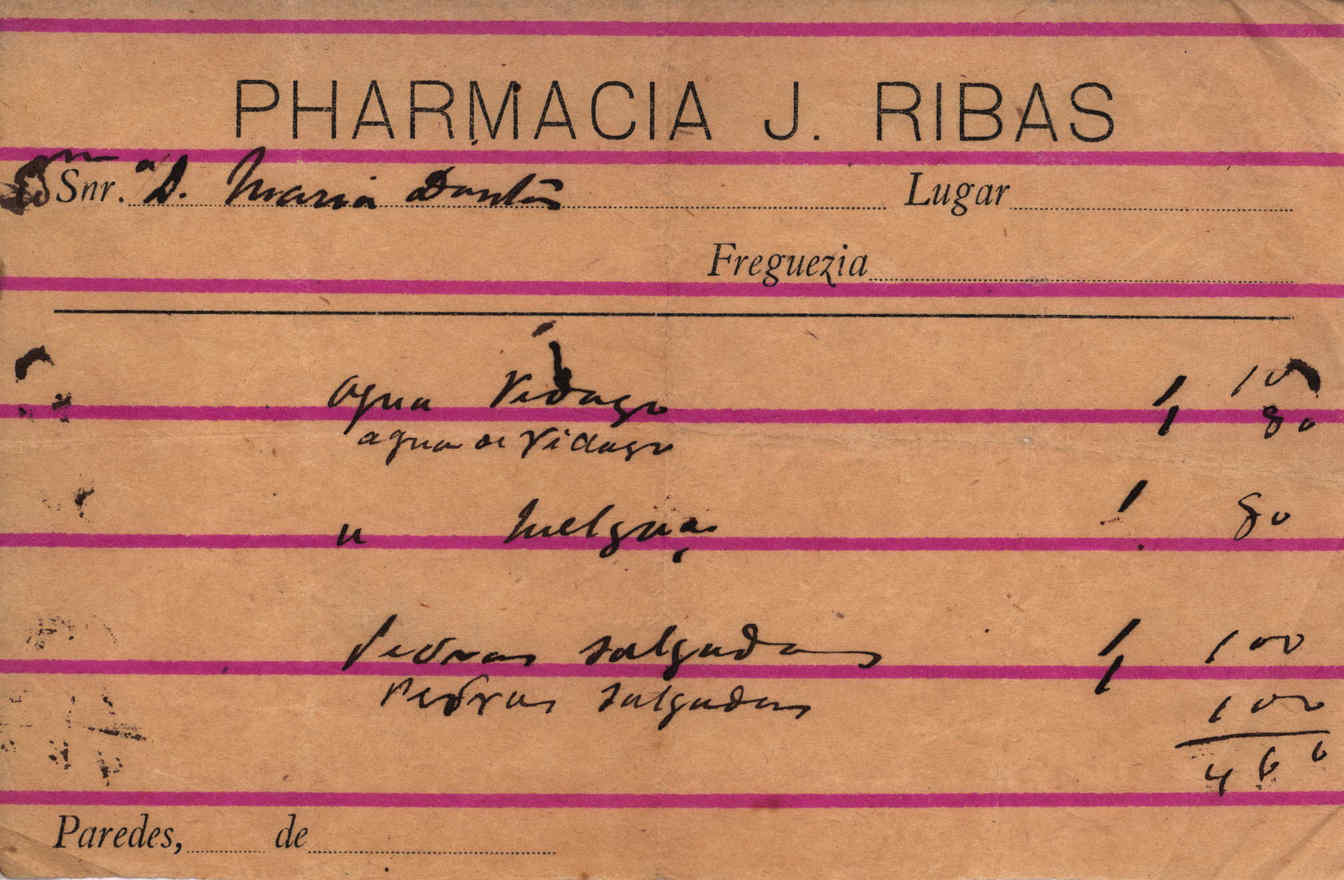 PHARMACIA J. RIBAS
Exma Snr.a D. Maria Dantas Lugar
Freguezia
Agua Vidago 1 100
agua de Vidago 1 80
" Melgaço 1 80
Pedras Salgadas 1 100
Pedras Salgadas 1 100
460
Paredes, de